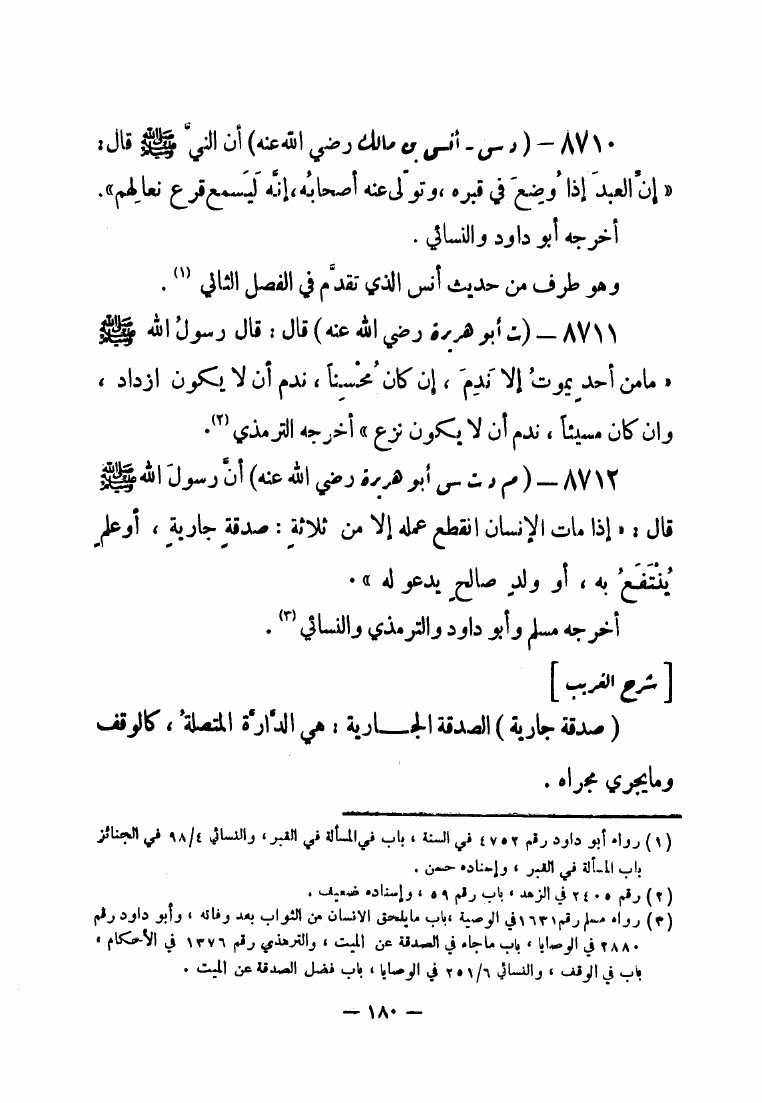 ٨٧١٠ — ( د س - أنس بن مالك رضي الله عنه) أن النبيَّ ﷺ قال:
« إنَّ العبدَ إذا وُضِعَ في قبره ، وتوّلى عنه أصحابُه، إنَّه لَيَسمع قرع نعالِهم».
أخرجه أبو داود والنسائي .
وهو طرف من حديث أنس الذي تقدَّم في الفصل الثاني (١) .
٨٧١١ — (ت أبو هريرة رضي الله عنه) قال : قال رسولُ الله ﷺ
« مامن أحدٍ يموتُ إلا نَدِمَ ، إن كان مُحْسِناً ، ندم أن لا يكون ازداد ،
وان كان مسيئاً ، ندم أن لا يكون نزع » أخرجه الترمذي (٢).
٨٧١٢ — ( م د ت س أبو هريرة رضي الله عنه) أنَّ رسولَ الله ﷺ
قال : « إذا مات الإنسان انقطع عمله إلا من ثلاثةٍ : صدقةٍ جاريةٍ ، أو علمٍ
يُنْتَفَعُ به ، أو ولدٍ صالحٍ يدعو له » .
أخرجه مسلم وأبو داود والترمذي والنسائي (٣) .
[ شرح الغريب ]
( صدقة جارية ) الصدقة الجـــارية : هي الدَّارَّة المتصلةُ ، كالوقف
ومايجري مجراه .
(١) رواه أبو داود رقم ٤٧٥٢ في السنة ، باب في المسألة في القبر ، والنسائي ٩٨/٤ في الجنائز
باب المسألة في القبر ، وإسناده حسن .
(٢) رقم ٢٤٠٥ في الزهد ، باب رقم ٥٩ ، وإسناده ضعيف .
(٣) رواه مسلم رقم ١٦٣١ في الوصية ، باب مايلحق الانسان من الثواب بعد وفاته ، وأبو داود رقم
٢٨٨٠ في الوصايا ، باب ماجاء في الصدقة عن الميت ، والترمذي رقم ١٣٧٦ في الأحكام ،
باب في الوقف ، والنسائي ٢٥١/٦ في الوصايا ، باب فضل الصدقة عن الميت .
— ١٨٠ —